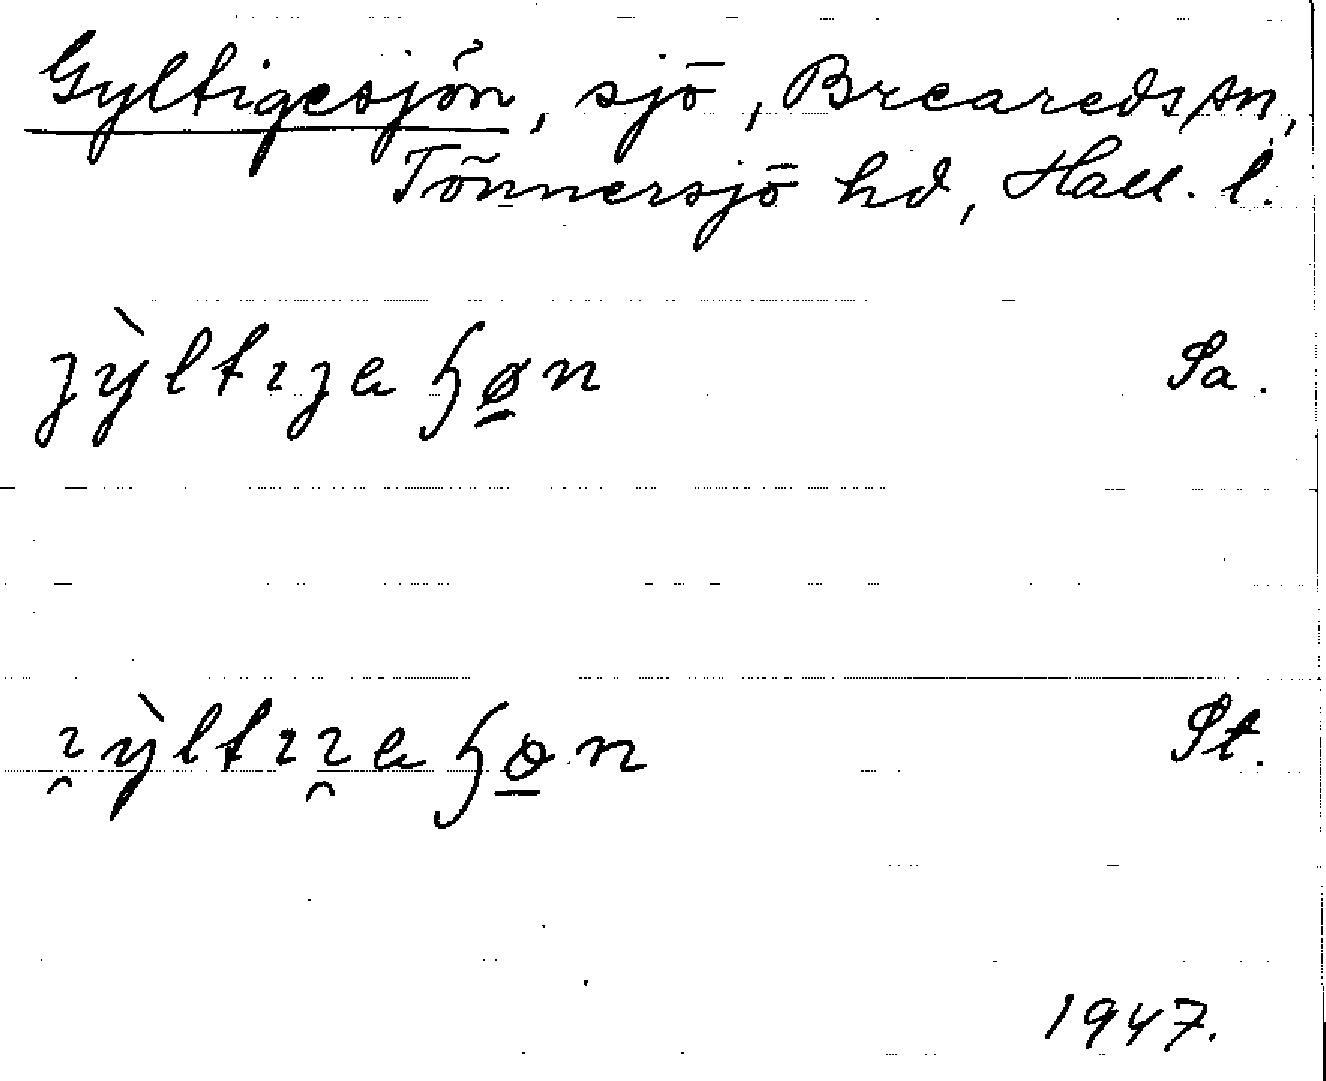 Gyltigesjön, sjö, Breareds sn,
Tönnersjö hd, Hall. l.
Sa.
St.
1947.